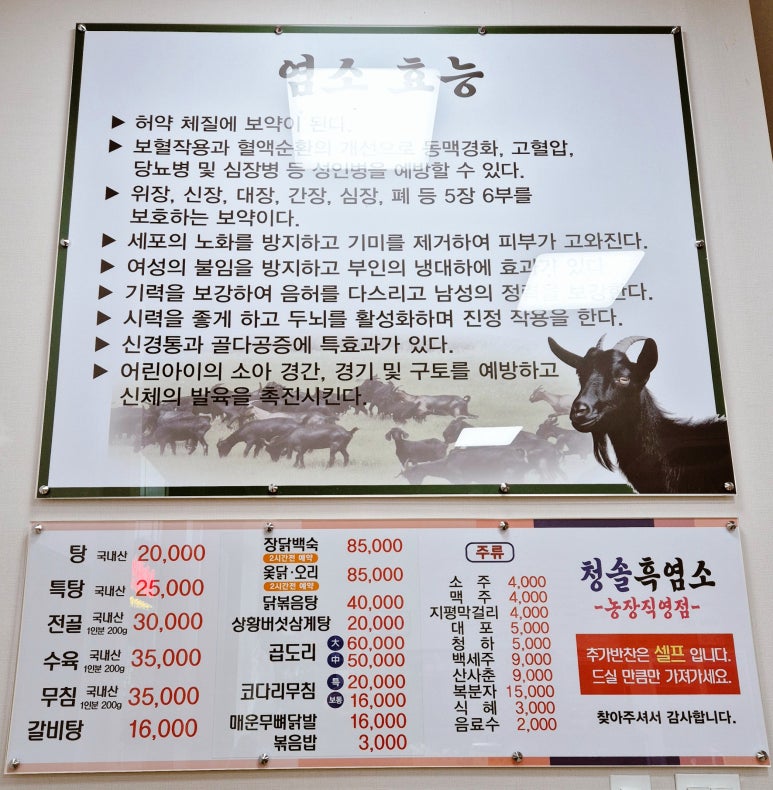 염소 효능
▶ 허약 체질에 보약이 된다.
▶ 보혈작용과 혈액순환의 개선으로 동맥경화, 고혈압,
당뇨병 및 심장병 등 성인병을 예방할 수 있다.
▶ 위장, 신장, 대장, 간장, 심장, 폐 등 5장 6부를
보호하는 보약이다.
▶ 세포의 노화를 방지하고 기미를 제거하여 피부가 고와진다.
▶ 여성의 불임을 방지하고 부인의 냉대하에 효과가 있다.
▶ 기력을 보강하여 음허를 다스리고 남성의 정력을 보강한다.
▶ 시력을 좋게 하고 두뇌를 활성화하며 진정 작용을 한다.
▶ 신경통과 골다공증에 특효과가 있다.
▶ 어린아이의 소아 경간, 경기 및 구토를 예방하고
신체의 발육을 촉진시킨다.
탕 국내산 20,000
특탕 국내산 25,000
전골 국내산 1인분 200g 30,000
수육 국내산 1인분 200g 35,000
무침 국내산 1인분 200g 35,000
갈비탕 16,000
장닭백숙 85,000
2시간전 예약
옻닭·오리 85,000
2시간전 예약
닭볶음탕 40,000
상황버섯삼계탕 20,000
곱도리 大 60,000
中 50,000
코다리무침 특 20,000
보통 16,000
매운무뼈닭발 16,000
볶음밥 3,000
주류
소주 4,000
맥주 4,000
지평막걸리 4,000
대포 5,000
청하 5,000
백세주 9,000
산사춘 9,000
복분자 15,000
식혜 3,000
음료수 2,000
청솔흑염소
-농장직영점-
추가반찬은 셀프 입니다.
드실 만큼만 가져가세요.
찾아주셔서 감사합니다.